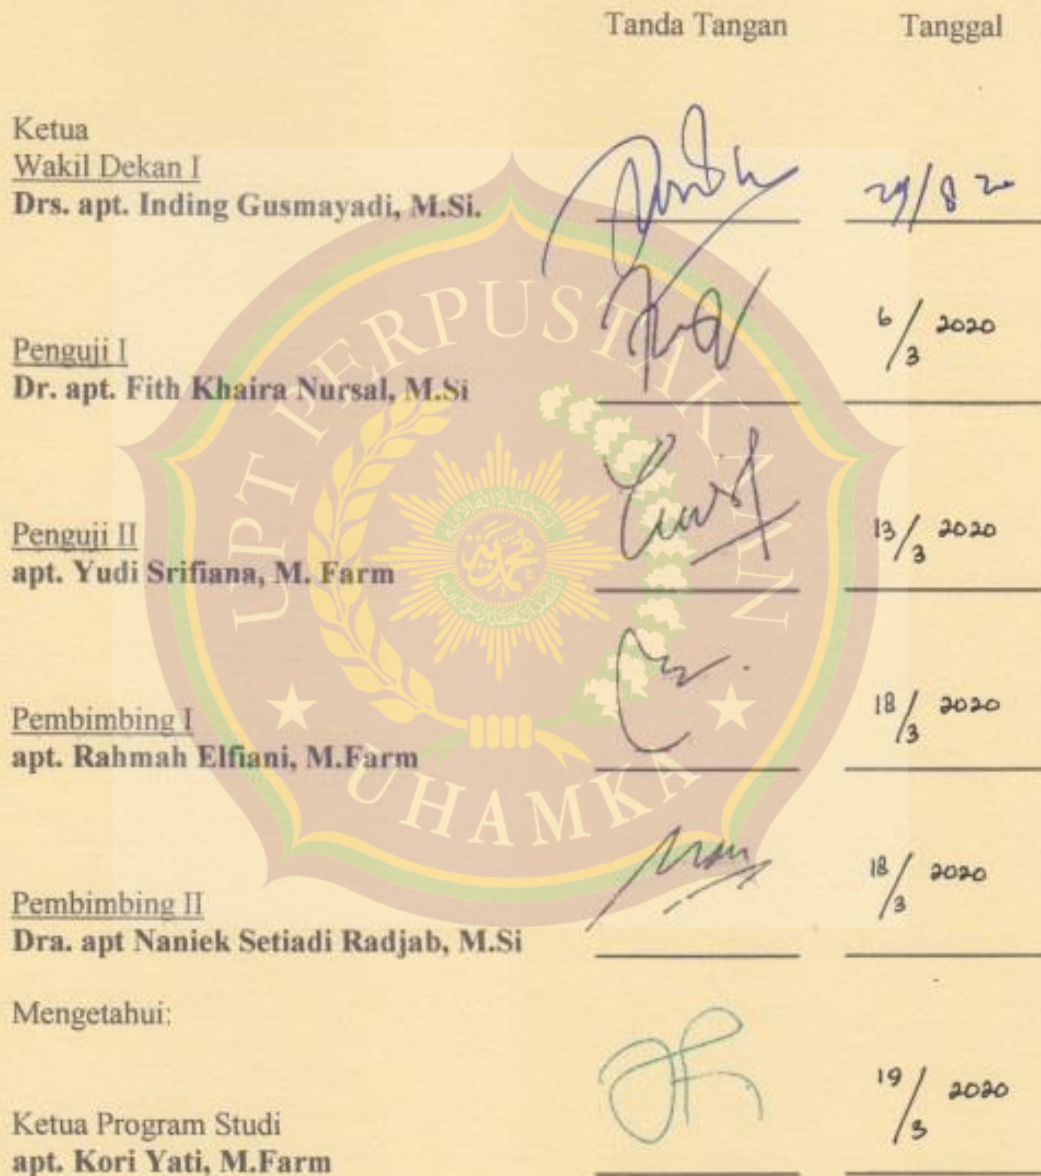 Tanda Tangan Tanggal
Ketua
Wakil Dekan I
Drs. apt. Inding Gusmayadi, M.Si.
29/8 20
Penguji I
Dr. apt. Fith Khaira Nursal, M.Si
6/3 2020
Penguji II
apt. Yudi Srifiana, M. Farm
13/3 2020
Pembimbing I
apt. Rahmah Elfiani, M.Farm
18/3 2020
Pembimbing II
Dra. apt Naniek Setiadi Radjab, M.Si
18/3 2020
Mengetahui:
Ketua Program Studi
apt. Kori Yati, M.Farm
19/3 2020
UPT PERPUSTAKAAN
UHAMKA